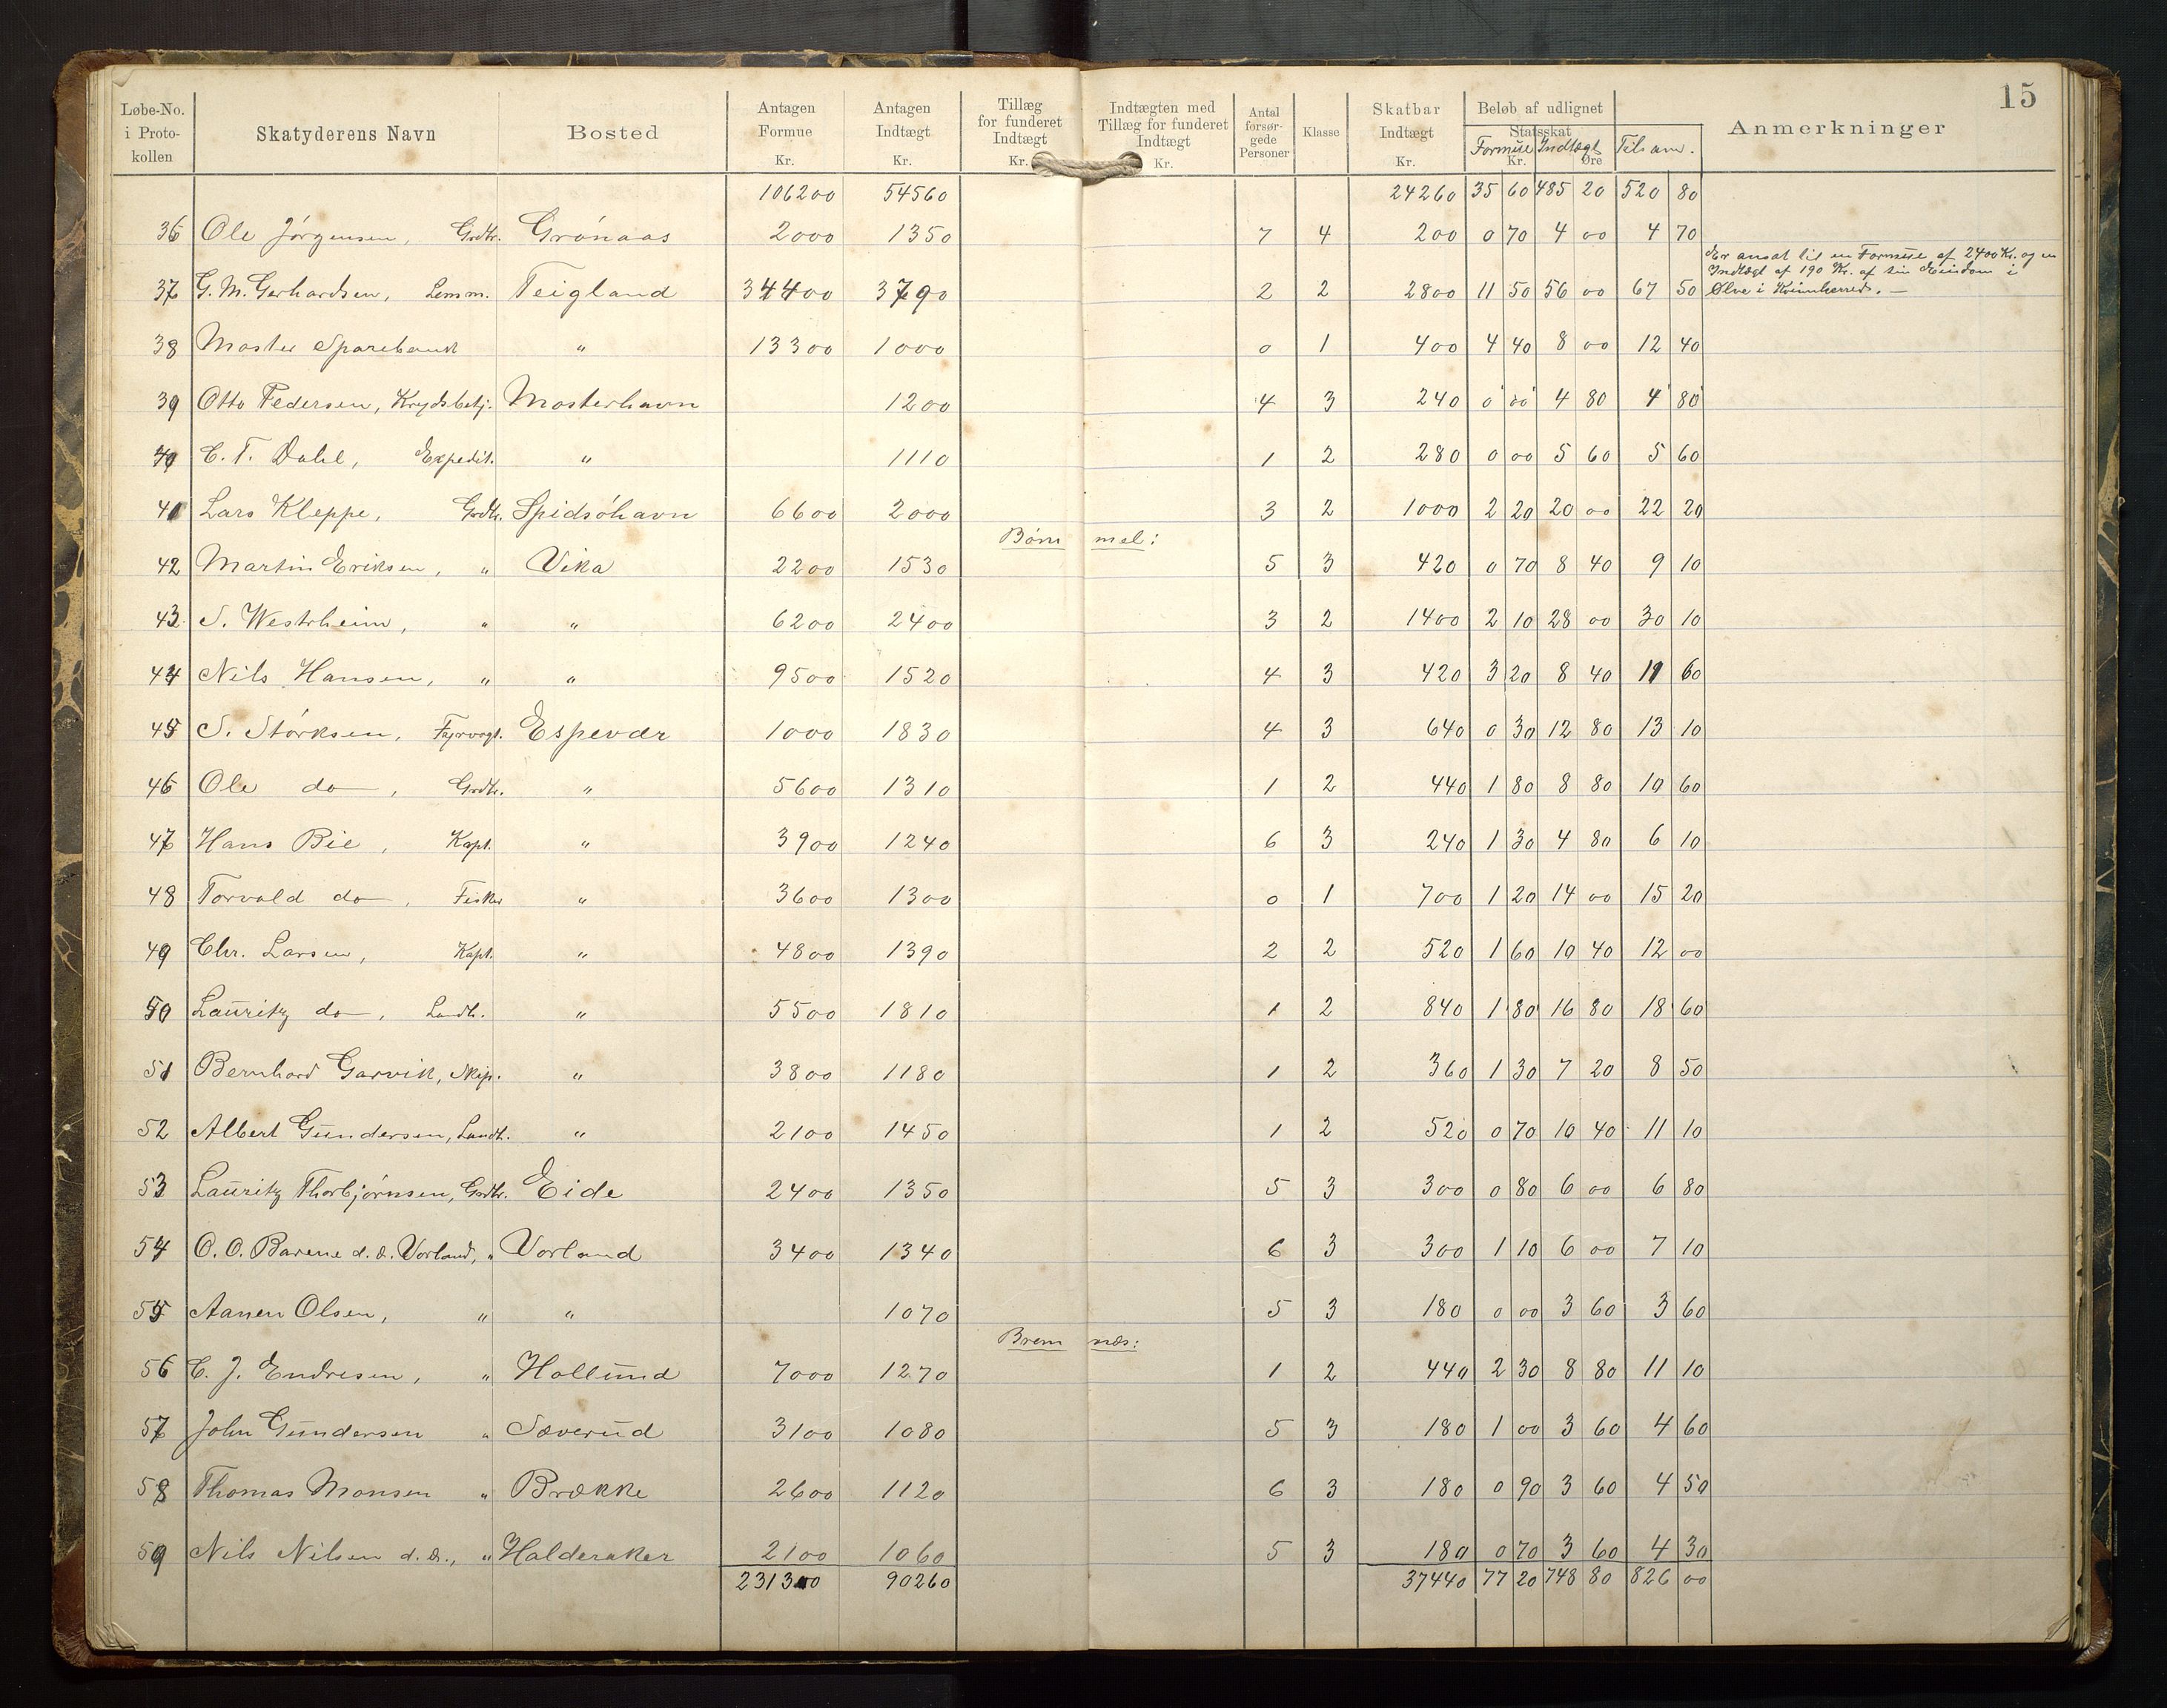 15
Løbe-No. i Protokollen | Skatyderens Navn | Bosted | Antagen Formue Kr. | Antagen Indtægt Kr. | Tillæg for funderet Indtægt Kr. | Indtægten med Tillæg for funderet Indtægt Kr. | Antal forsørgede Personer | Klasse | Skatbar Indtægt Kr. | Beløb af udlignet Statsskat Kr. Øre Formue Indtægt | Tilsam. | Anmerkninger
106200 54560 24260 35 60 485 20 520 80
36 Ole Jörgensen, Grdbr. Grönaas 2000 1350 7 4 200 0 70 4 00 4 70
Er ansat til en Formue af 2400 Kr. og en
Indtægt af 190 Kr. af sin Eiendom i
37 G. M. Gerhardsen, Lensm. Teigland 34400 3790 2 2 2800 11 50 56 00 67 50 Ølve i Kvinnherred. —
38 Moster Sparebank " 13300 1000 0 1 400 4 40 8 00 12 40
39 Otto Pedersen, Krydsbetj. Mosterhavn 1200 4 3 240 0 00 4 80 4 80
40 C. T. Dahl, Expedit. " 1110 1 2 280 0 00 5 60 5 60
41 Lars Kleppe, Grdbr. Spidsöhavn 6600 2000 3 2 1000 2 20 20 00 22 20
Bömmel:
42 Martin Eriksen, " Vika 2200 1530 5 3 420 0 70 8 40 9 10
43 S. Westrheim, " " 6200 2400 3 2 1400 2 10 28 00 30 10
44 Nils Hansen, " " 9500 1520 4 3 420 3 20 8 40 11 60
45 S. Störksen, Fyrvogt. Espevær 1000 1830 4 3 640 0 30 12 80 13 10
46 Ole do, Grdbr. " 5600 1310 1 2 440 1 80 8 80 10 60
47 Hans Bie, Kapt. " 3900 1240 6 3 240 1 30 4 80 6 10
48 Torvald do, Fisker " 3600 1300 0 1 700 1 20 14 00 15 20
49 Chr. Larsen, Kapt. " 4800 1390 2 2 520 1 60 10 40 12 00
50 Lauritz do, Landh. " 5500 1810 1 2 840 1 80 16 80 18 60
51 Bernhard Garvik, Skip. " 3800 1180 1 2 360 1 30 7 20 8 50
52 Albert Gundersen, Landh. " 2100 1450 1 2 520 0 70 10 40 11 10
53 Lauritz Thorbjörnsen, Grdbr. Eide 2400 1350 5 3 300 0 80 6 00 6 80
54 O. O. Barene d. æ. Vorland, " Vorland 3400 1340 6 3 300 1 10 6 00 7 10
55 Aanen Olsen, " " 1070 5 3 180 0 00 3 60 3 60
Bremnæs:
56 C. J. Endresen, " Hollund 7000 1270 1 2 440 2 30 8 80 11 10
57 John Gundersen " Sæverud 3100 1080 5 3 180 1 00 3 60 4 60
58 Thomas Monsen " Brække 2600 1120 6 3 180 0 90 3 60 4 50
59 Nils Nilsen d. æ., " Halderaker 2100 1060 5 3 180 0 70 3 60 4 30
231300 90260 37440 77 20 748 80 826 00